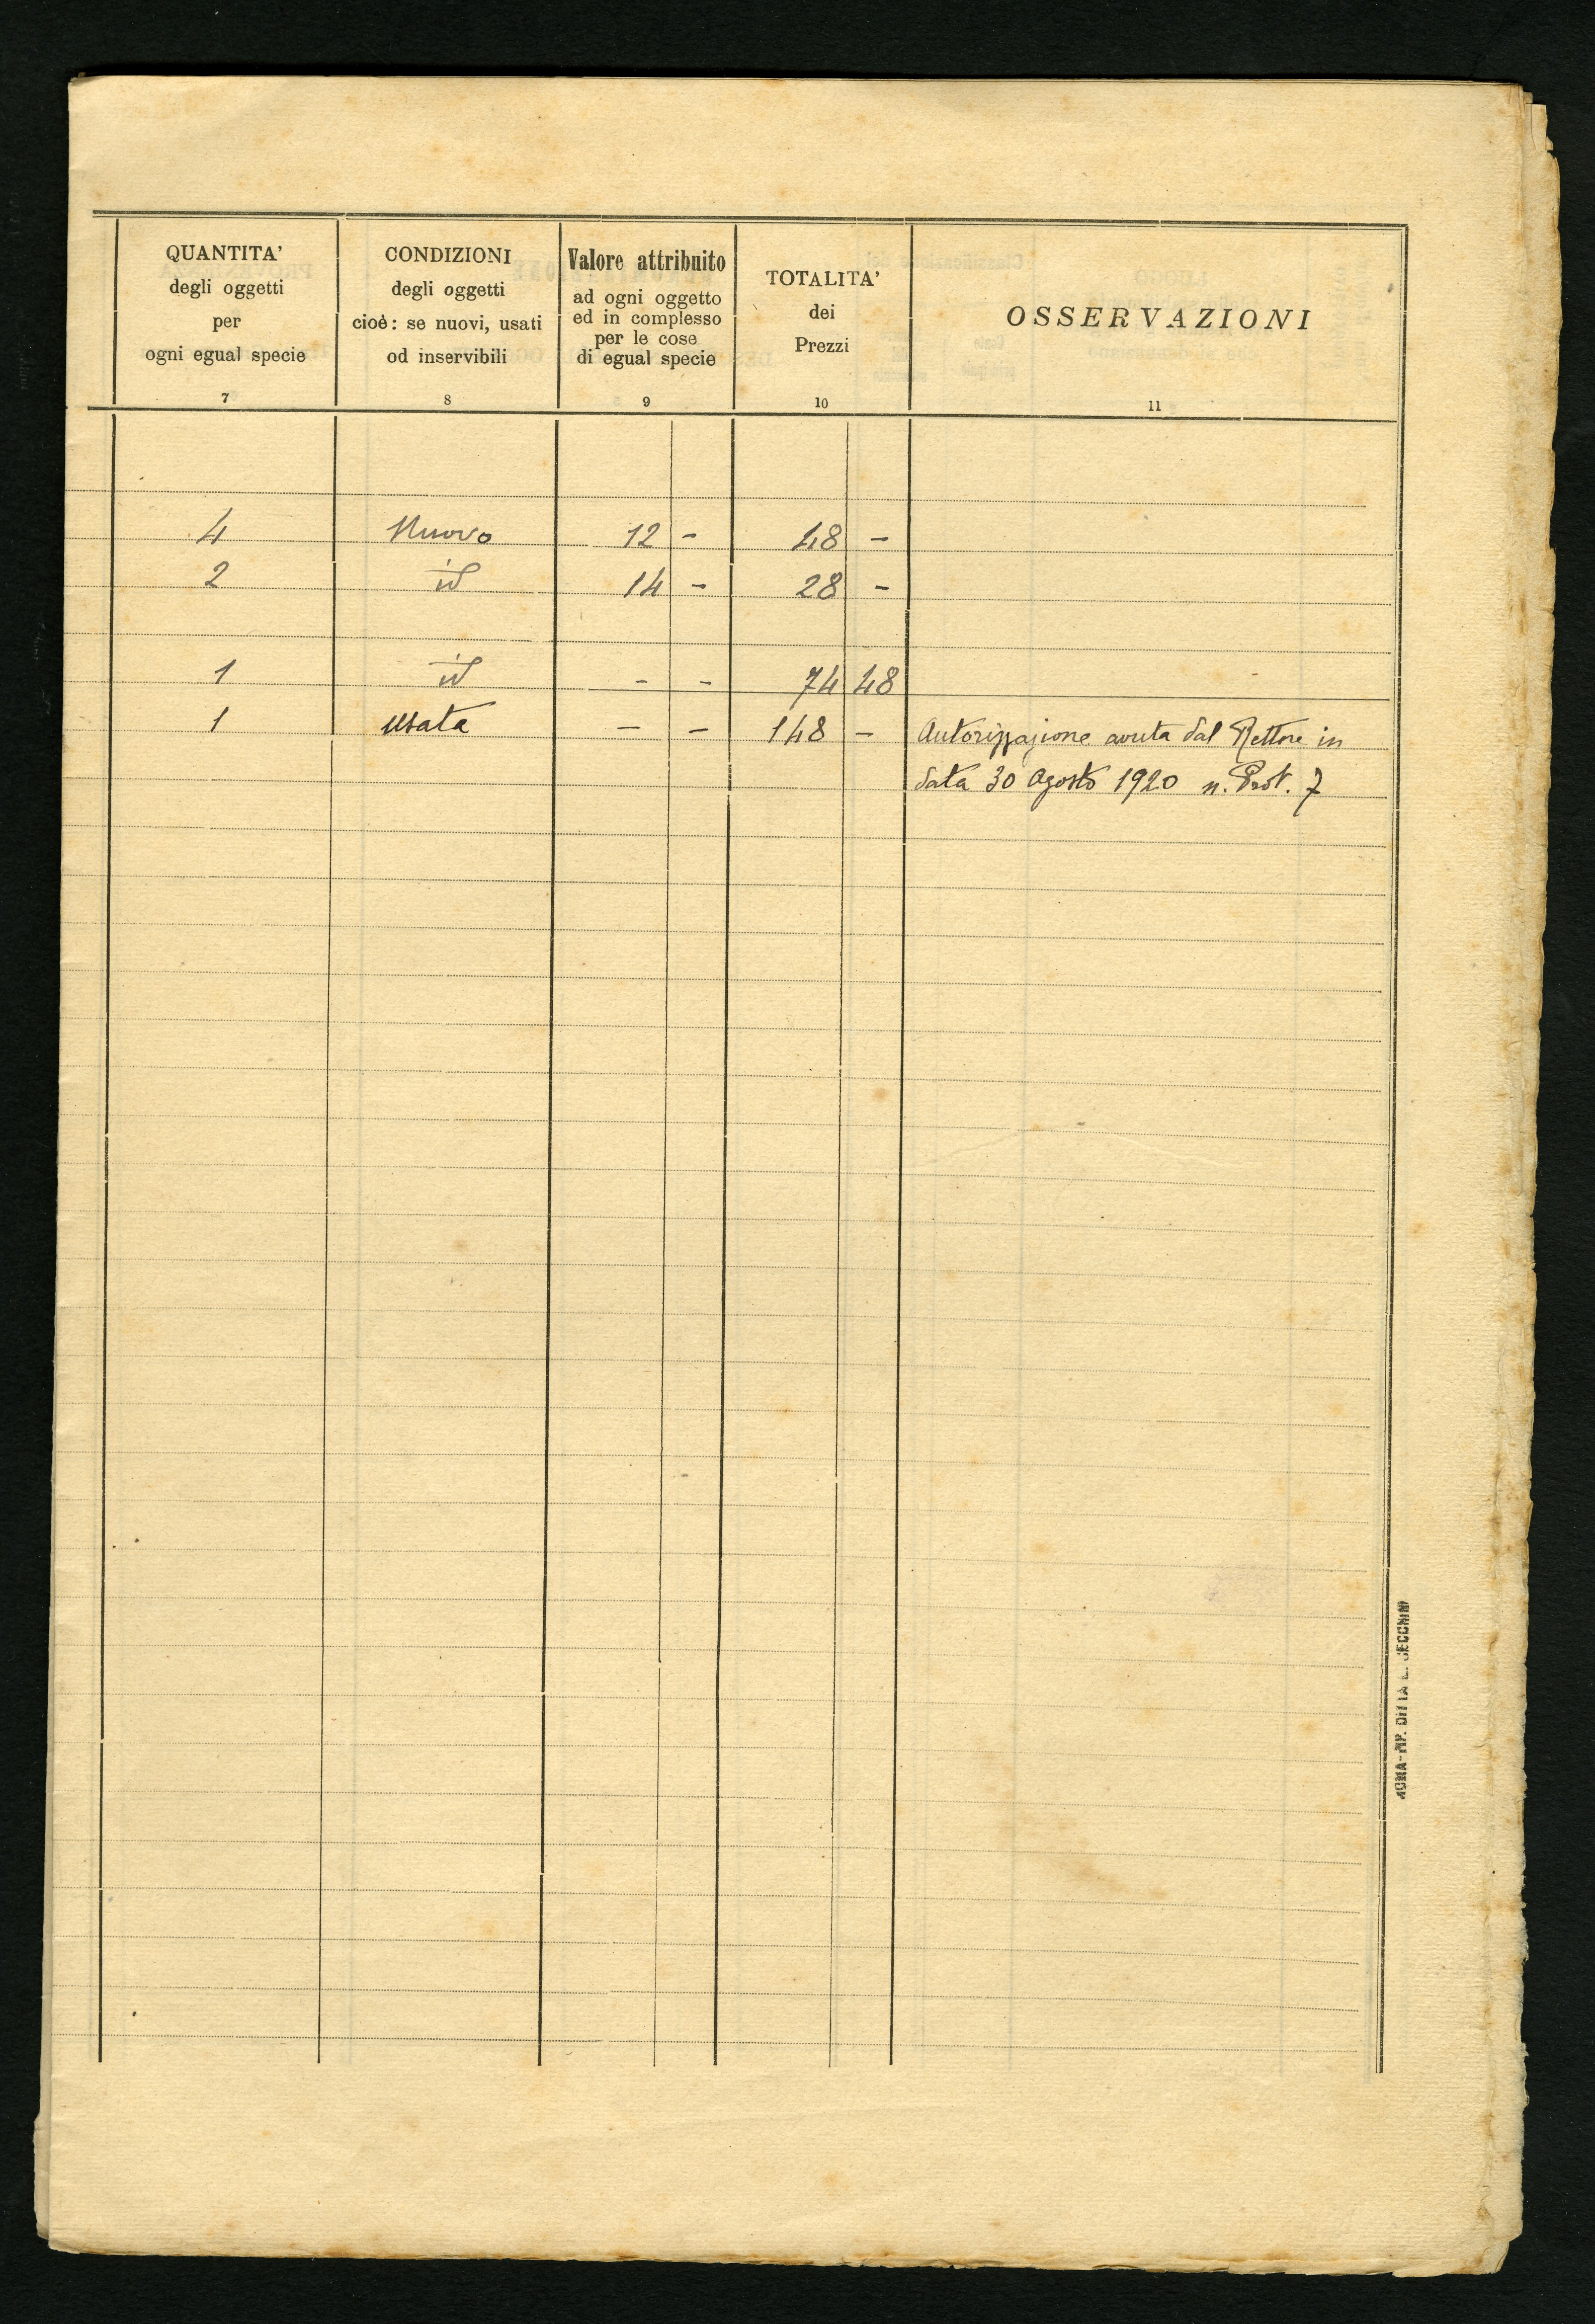 QUANTITA'
degli oggetti
per
ogni egual specie
7
CONDIZIONI
degli oggetti
cioè: se nuovi, usati
od inservibili
8
Valore attribuito
ad ogni oggetto
ed in complesso
per le cose
di egual specie
9
TOTALITA'
dei
Prezzi
10
OSSERVAZIONI
11
4 Nuovo 12 - 48 -
2 id 14 - 28 -
1 id - - 74 48
1 usata - - 148 - Autorizzazione avuta dal Rettore in
data 30 Agosto 1920 n. Prot. 7
DITTA L. CECCHINI